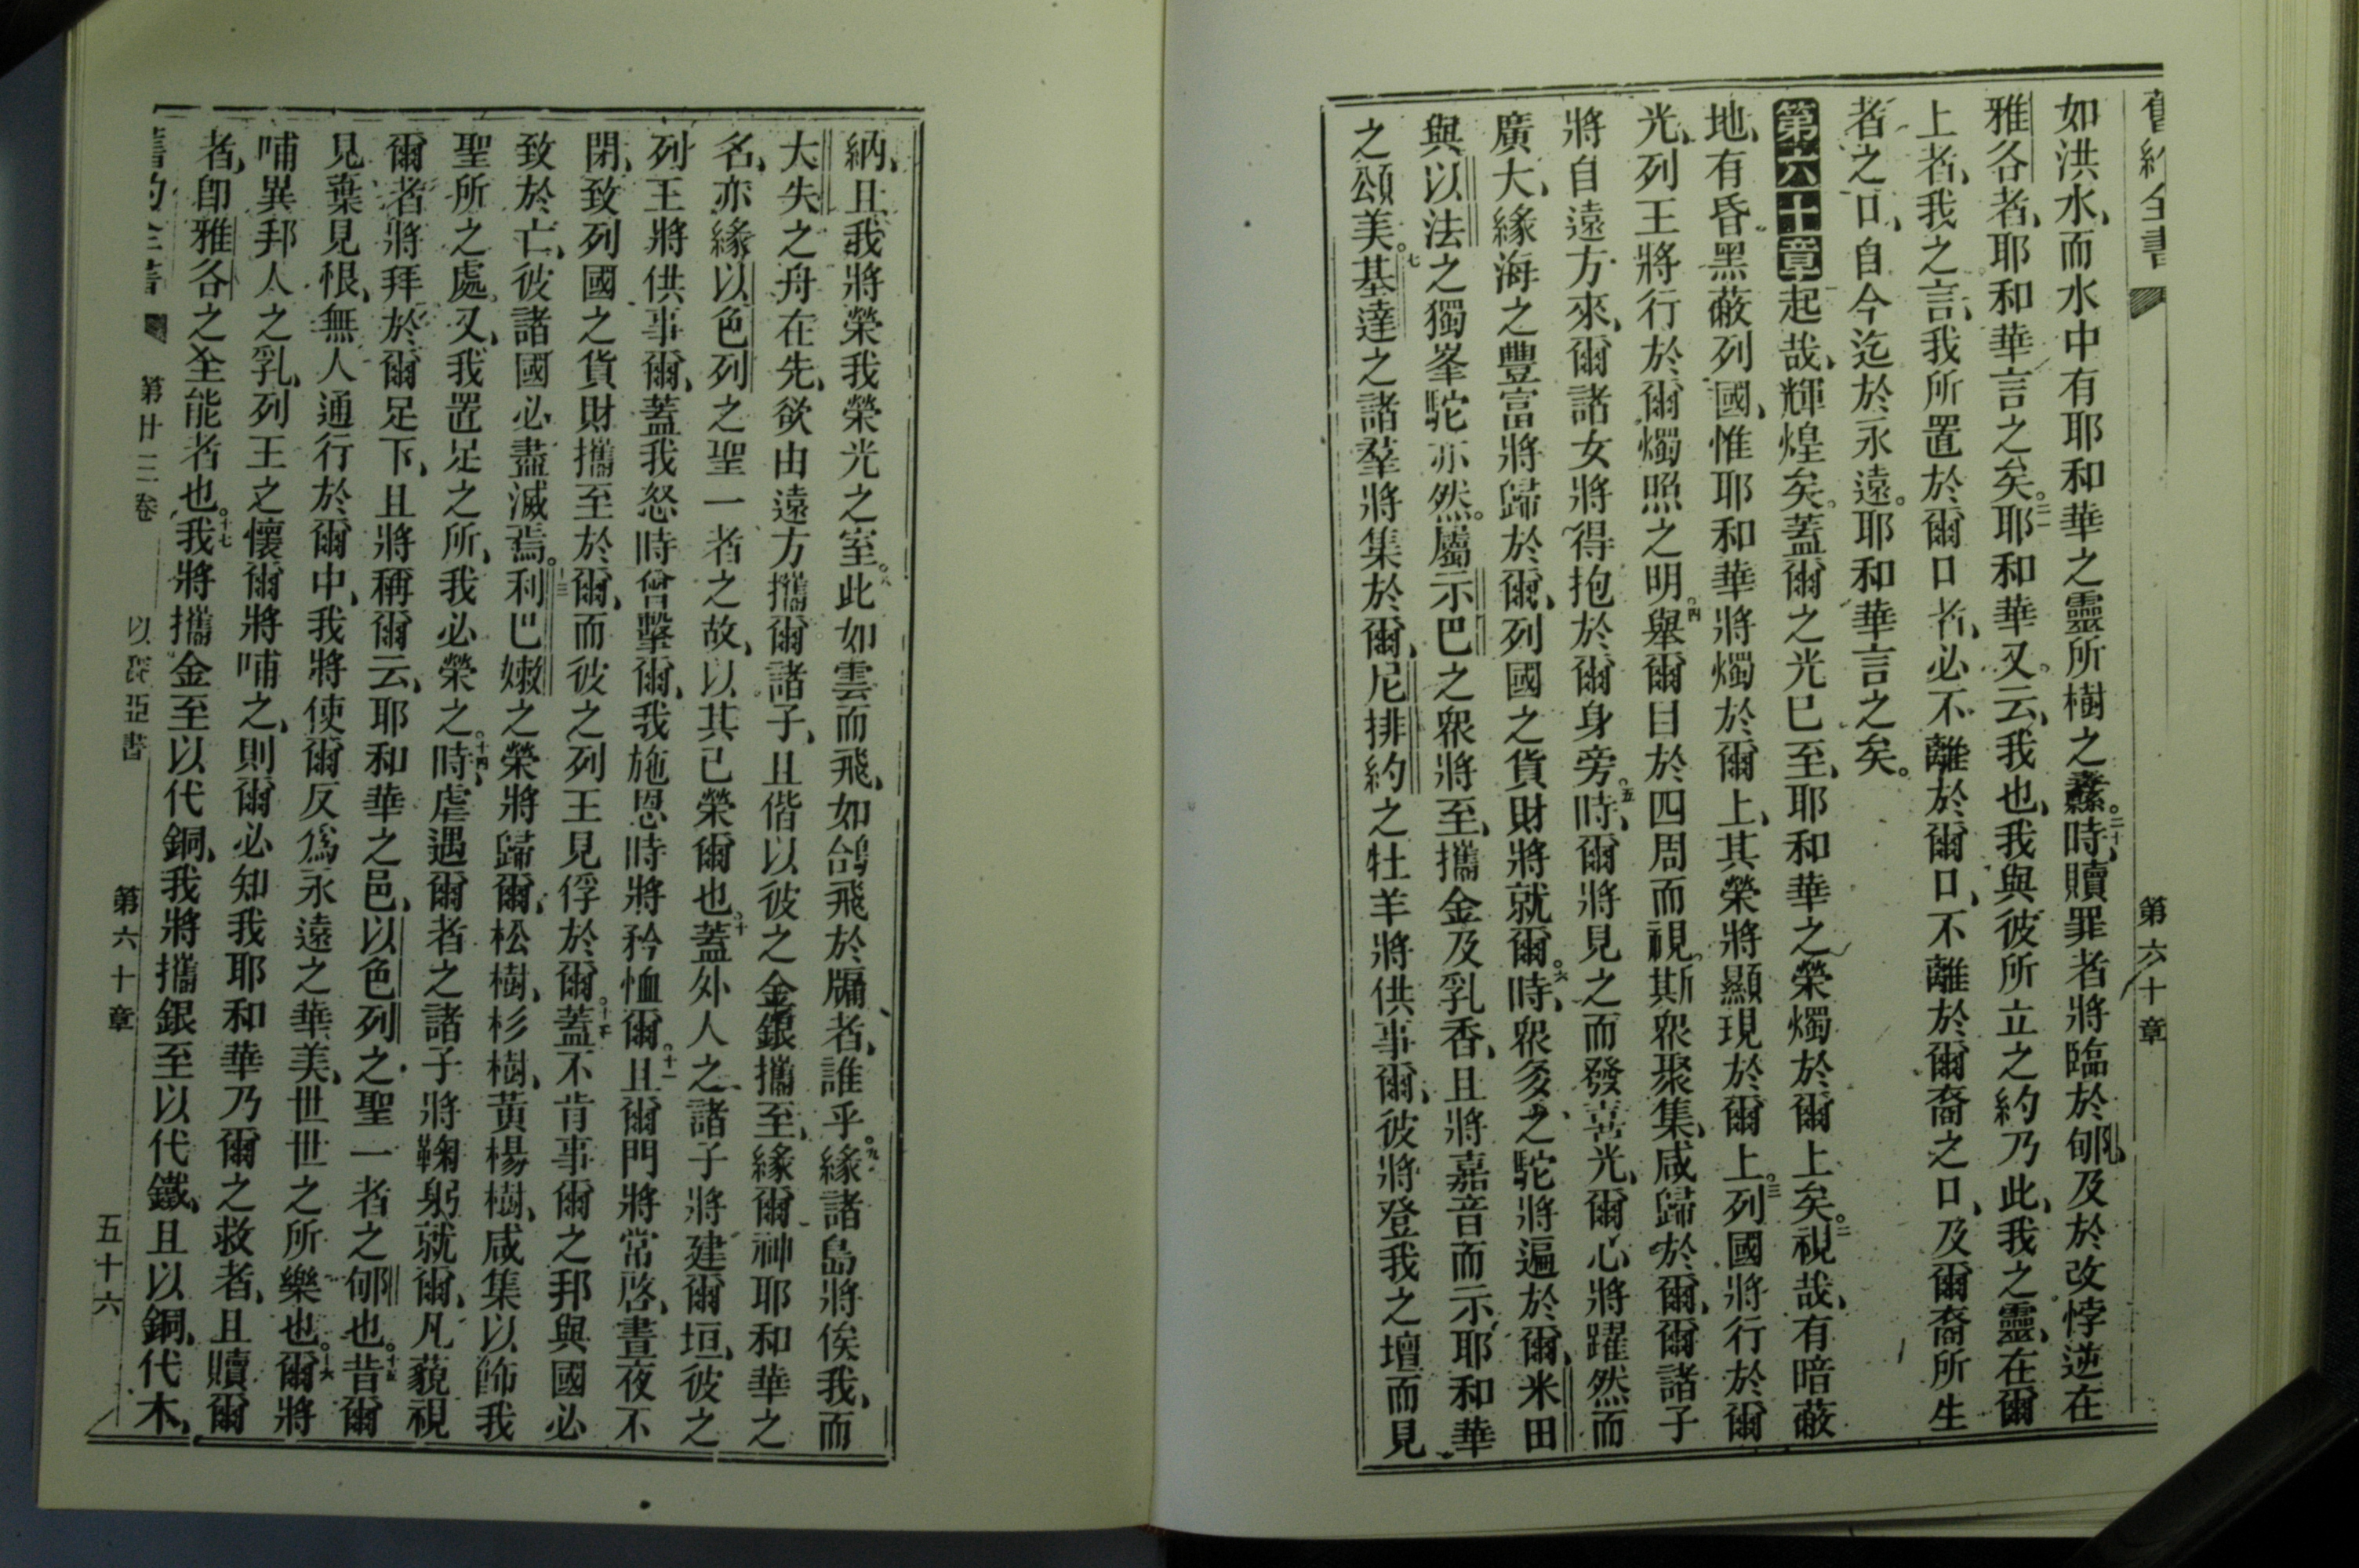 舊約全書
第六十章
如洪水、而水中有耶和華之靈所樹之纛。二十時、贖罪者將臨於郇、及於改悖逆在
雅各者、耶和華言之矣。二一耶和華又云、我也、我與彼所立之約乃此、我之靈、在爾
上者、我之言、我所置於爾口者、必不離於爾口、不離於爾裔之口、及爾裔所生
者之口、自今迄於永遠。耶和華言之矣。
第六十章起哉、輝煌矣。蓋爾之光已至、耶和華之榮燭於爾上矣。二視哉、有暗蔽
地、有昏黑蔽列國、惟耶和華將燭於爾上、其榮將顯現於爾上。三列國將行於爾
光、列王將行於爾燭照之明。四舉爾目於四周而視。斯衆聚集、咸歸於爾、爾諸子
將自遠方來、爾諸女將得抱於爾身旁。五時、爾將見之而發喜光、爾心將躍然而
廣大、緣海之豐富將歸於爾、列國之貨財將就爾。六時、衆多之駝將遍於爾、米田
與以法之獨峯駝亦然。屬示巴之衆將至、攜金及乳香、且將嘉音而示耶和華
之頌美。七基達之諸羣將集於爾、尼排約之牡羊將供事爾、彼將登我之壇而見
納、且我將榮我榮光之室。八此如雲而飛、如鴿飛於牖者、誰乎。九緣諸島將俟我、而
大失之舟在先、欲由遠方攜爾諸子、且偕以彼之金銀攜至、緣爾神耶和華之
名、亦緣以色列之聖一者之故、以其已榮爾也。十蓋外人之諸子將建爾垣、彼之
列王將供事爾、蓋我怒時曾擊爾、我施恩時將矜恤爾。十一且爾門將常啓、晝夜不
閉、致列國之貨財攜至於爾、而彼之列王見俘於爾。十二蓋不肯事爾之邦與國必
致於亡、彼諸國必盡滅焉。十三利巴嫩之榮將歸爾、松樹、杉樹、黃楊樹、咸集以飾我
聖所之處。又、我置足之所、我必榮之。十四時、虐遇爾者之諸子將鞠躬就爾、凡藐視
爾者將拜於爾足下、且將稱爾云、耶和華之邑、以色列之聖一者之郇也。十五昔爾
見棄見恨、無人通行於爾中、我將使爾反爲永遠之華美、世世之所樂也。十六爾將
哺異邦人之乳、列王之懷爾將哺之、則爾必知我耶和華乃爾之救者、且贖爾
者、卽雅各之全能者也。十七我將攜金至以代銅、我將攜銀至以代鐵、且以銅代木、
舊約全書
第廿三卷
以賽亞書
第六十章
五十六